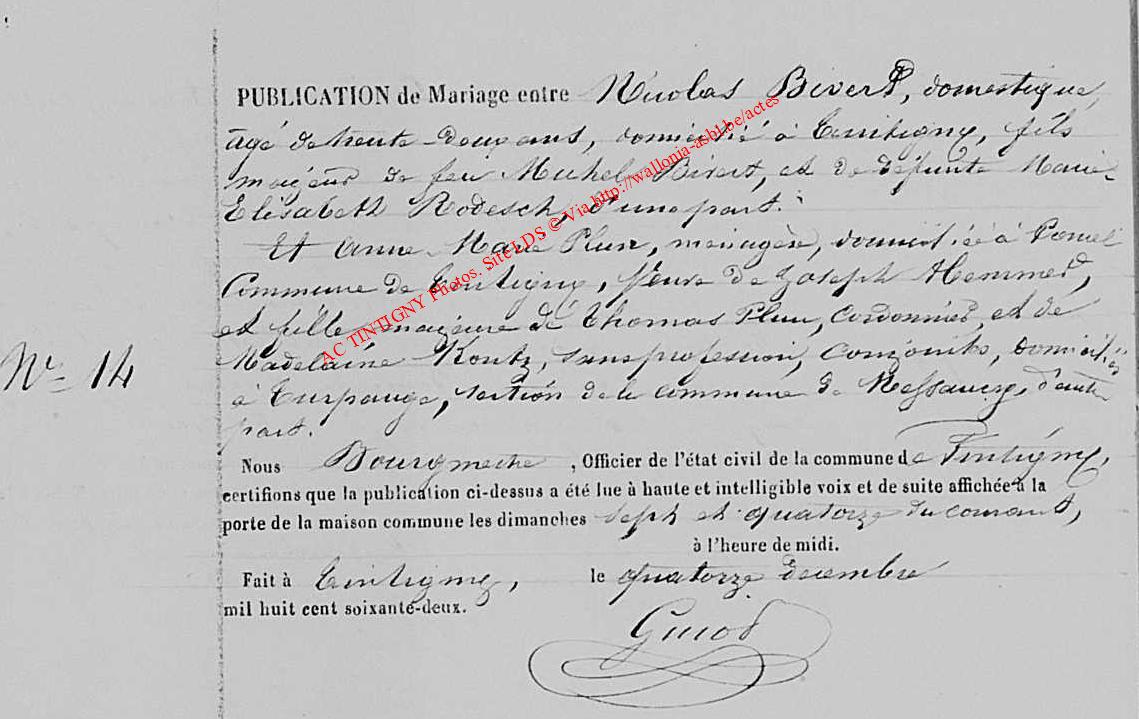 PUBLICATION de Mariage entre Nicolas Bivert, domestique,
âgé de trente-deux ans, domicilié à Tintigny, fils
majeur de feu Michel Bivert, et de défunte Marie
Elisabeth Rodesch, d'une part.
Et Anne Marie Plun, ménagère, domiciliée à
Commune de Tintigny, Veuve de Joseph Hemmer,
et fille majeure de Thomas Plun, Cordonnier, et de
Madelaine Kontz, sans profession, conjoints, domiciliés
à Turpange, section de la commune de Messancy, d'autre
part.
N° 14
Nous Bourgmestre, Officier de l'état civil de la commune de Tintigny,
certifions que la publication ci-dessus a été lue à haute et intelligible voix et de suite affichée à la
porte de la maison commune les dimanches sept et quatorze du courant,
à l'heure de midi.
Fait à Tintigny, le quatorze decembre
mil huit cent soixante-deux.
AC TINTIGNY Photos. Site LDS © Via http://wallonia-asbl.be/actes